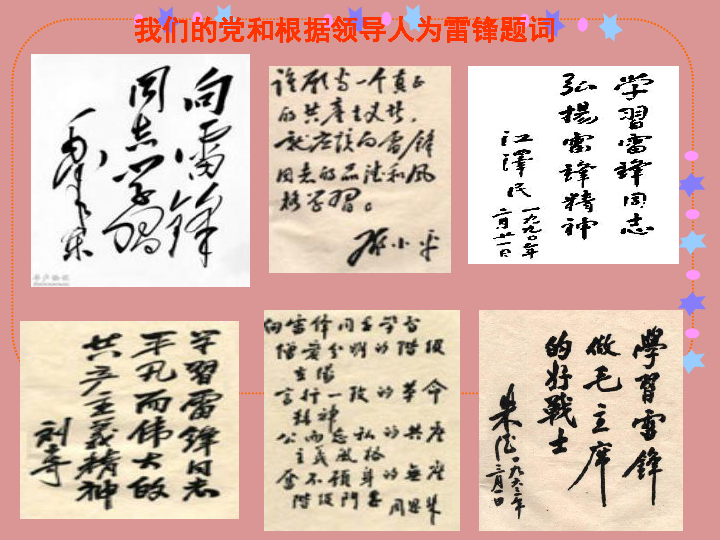 我们的党和根据领导人为雷锋题词
向雷锋
同志学习
毛泽东
谁愿当一个真正
的共产主义者，
就应该向雷锋
同志的品德和风
格学习。
邓小平
学習雷锋同志
弘揚雷锋精神
江澤民
一九九〇年
学習雷锋同志
平凡而伟大的
共产主義精神
刘少奇
向雷锋同志学習
憎爱分明的階级
立場
言行一致的革命
精神
公而忘私的共產
主義風格
奋不顧身的無產
階级鬥志
周恩来
學習雷锋
做毛主席
的好戰士
朱德
一九六三年